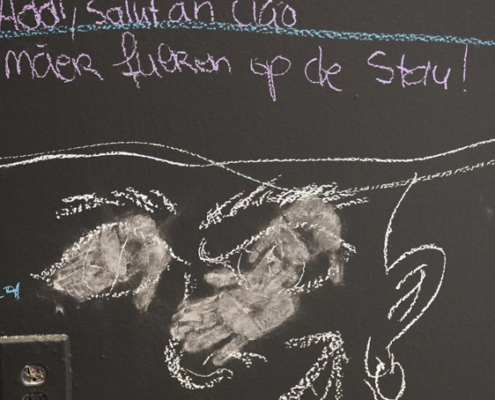 Addi, Salut an Ciao
mäer fueren op de Stau!